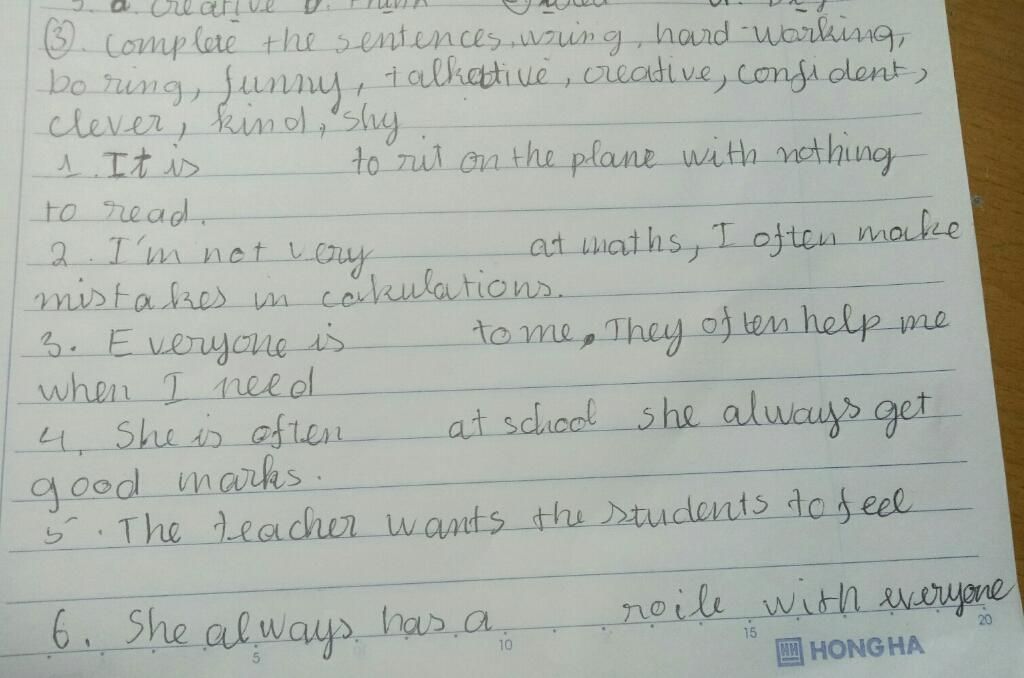 3. a. creative b.
③. Complete the sentences, using, hard-working,
boring, funny, talkative, creative, confident,
clever, kind, shy
1. It is to sit on the plane with nothing
to read.
2. I'm not very at maths, I often make
mistakes in calculations.
3. Everyone is to me. They often help me
when I need
4. She is often at school she always get
good marks.
5. The teacher wants the students to feel
6. She always has a with everyone
5 10 15 20
HONG HA